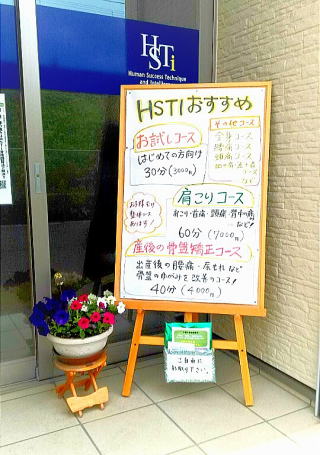 HSTi
Human Success Technique
HSTIおすすめ
お試しコース
はじめての方向け
30分(3000円)
その他コース
全身コース
腰痛コース
頭痛コース
コース
など
お子様向け
整体コース
あります!
肩こりコース
肩こり・首痛・頭痛・背中の痛み
など!
60分(7000円)
産後の骨盤矯正コース
出産後の腰痛・尿もれなど
骨盤のゆがみを改善のコース!
40分(4000円)
ご自由に
お取り下さい。